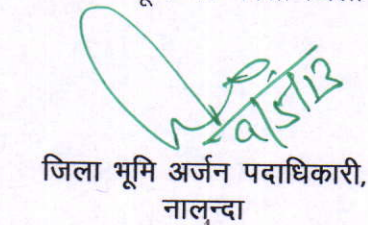 9/5/13
जिला भूमि अर्जन पदाधिकारी,
नालन्दा